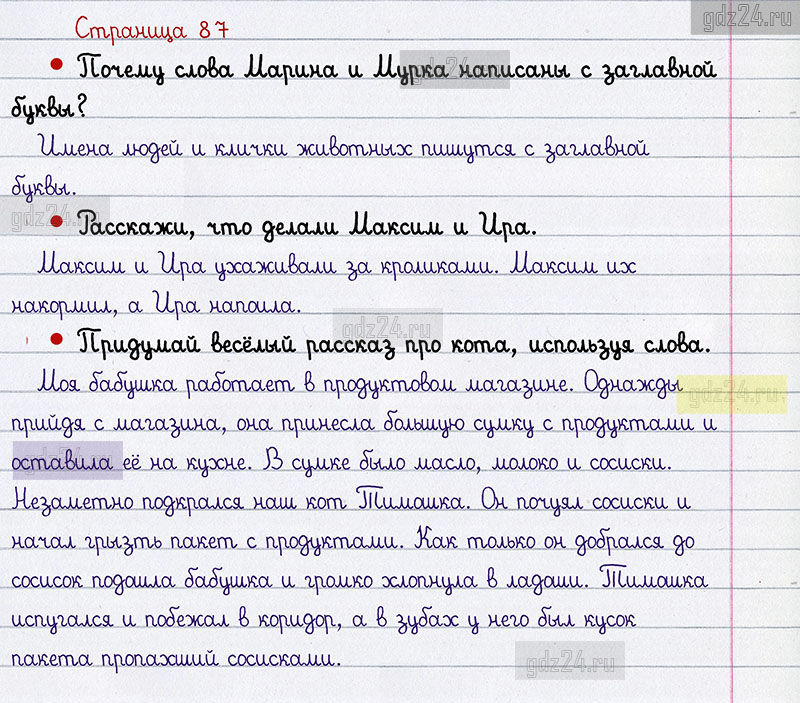 gdz24.ru
Страница 87
• Почему слова Марина и Мурка написаны с заглавной
буквы?
Имена людей и клички животных пишутся с заглавной
буквы.
gdz24.ru
• Расскажи, что делали Максим и Ира.
Максим и Ира ухаживали за кроликами. Максим их
накормил, а Ира напоила.
gdz24.ru
• Придумай весёлый рассказ про кота, используя слова.
Моя бабушка работает в продуктовом магазине. Однажды
gdz24.ru
прийдя с магазина, она принесла большую сумку с продуктами и
оставила её на кухне. В сумке было масло, молоко и сосиски.
Незаметно подкрался наш кот Тимашка. Он почуял сосиски и
начал грызть пакет с продуктами. Как только он добрался до
сосисок подошла бабушка и громко хлопнула в ладоши. Тимашка
испугался и побежал в коридор, а в зубах у него был кусок
пакета пропахший сосисками.
gdz24.ru